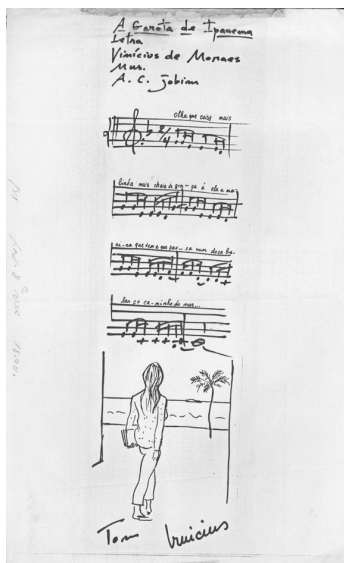 A Garota de Ipanema
Letra
Vinicius de Moraes
Mus.
A. C. Jobim
2/4
Olha que coisa mais
linda mais cheia de gra-ça é ela a me
ni-na que vem e que pas-sa num doce ba-
lan ço ca-minho do mar...
Tom Vinicius